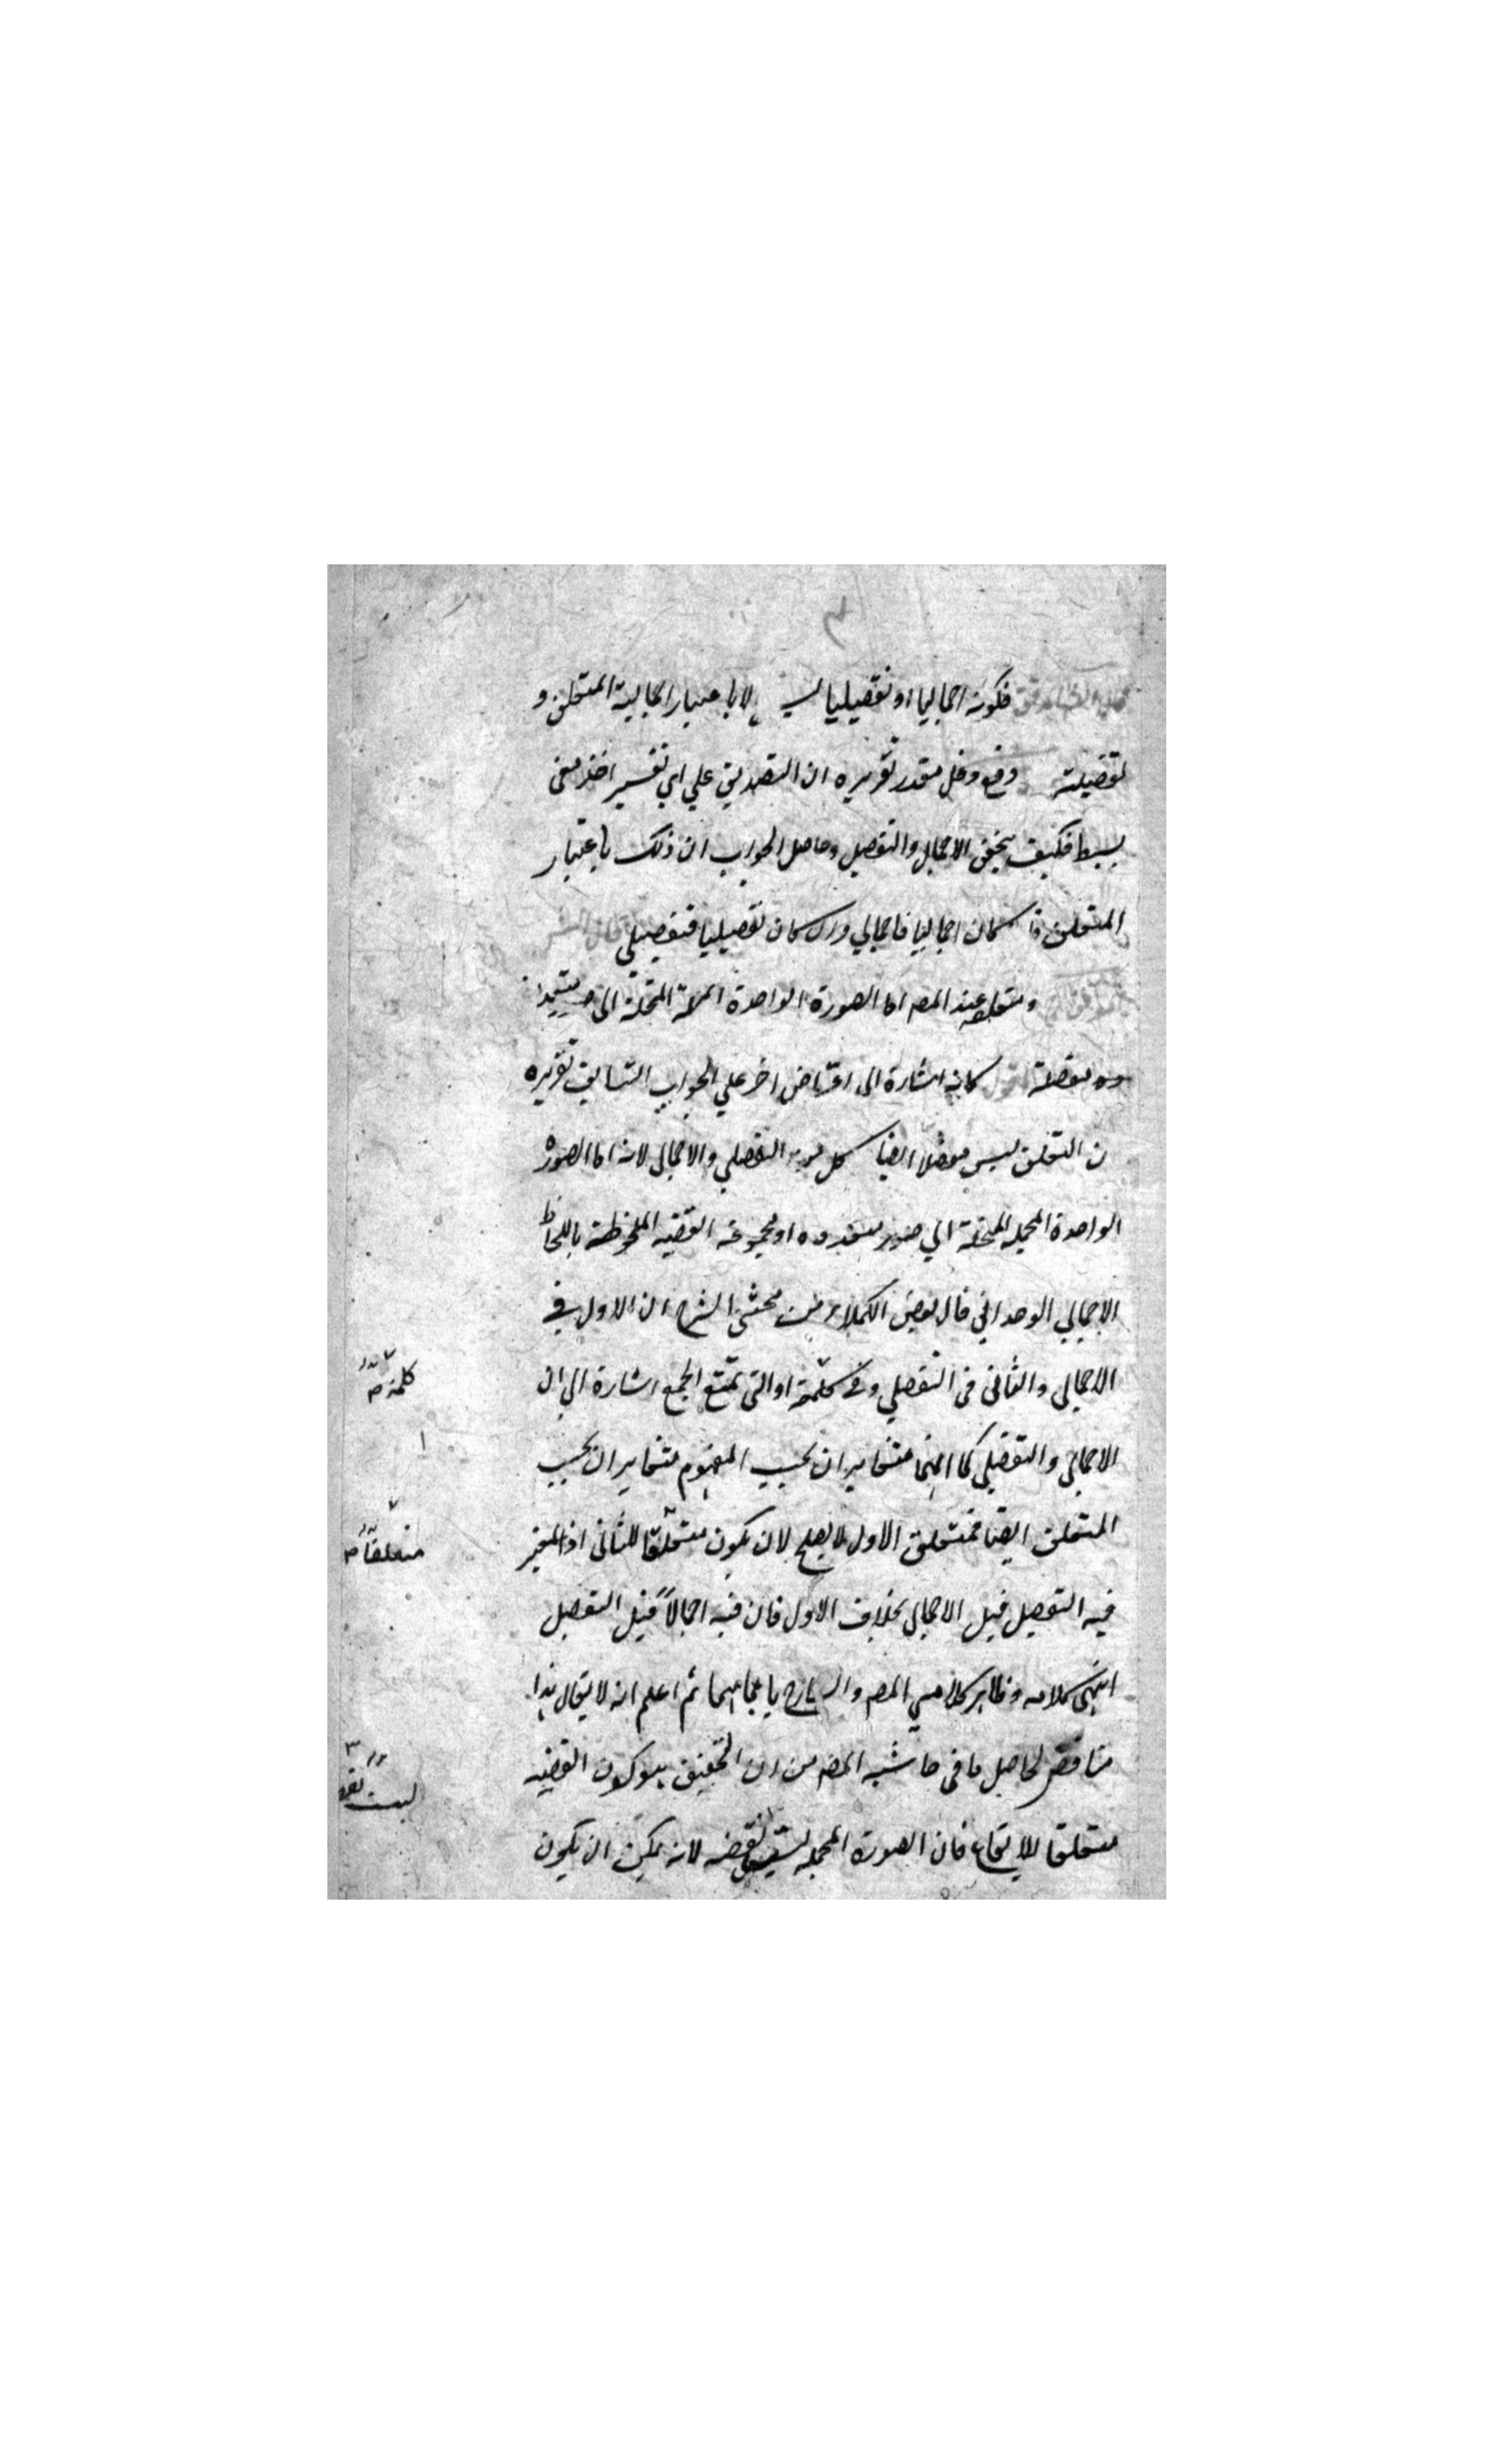 ٣
فكونه اجماليا او تفصيليا ليس الا باعتبار اجمالية المتعلق و
تفضيلته دفع دخل مقدر تقريره ان التصديق علي اي تفسير اخذ معنى
بسيط فكيف يتحقق الاجمال والتفصيل وحاصل الجواب ان ذلك باعتبار
المتعلق كان اجماليا فاجمالي وان كان تفصيليا فتفصيلي
ومتعلقه عند المصـ اما الصورة الواحدة المنحلة الى
كانه اشارة الى اعتراض اخر علي الجواب السابق تقريره
ن المتعلق ليس مفصلا ايضا كل من التفصيلي والاجمالي لانه اما الصورة
الواحدة المجملة المنحلة الي صور متعددة او مجموعة القضية الملحوظة باللحاظ
الاجمالي الوحداني قال بعض الكملاء من محشي الشرح ان الاول في
الاجمالي والثاني في التفصلي وفي كلمة او التي تمنع الجمع اشارة الي ان
الاجمالي والتفصيلي كما انهما متغايران بحسب المفهوم متغايران بحسب
المتعلق ايضا فمتعلق الاول لا يصلح لان يكون متعلقا للثاني اذ المعتبر
فيه التفصيل قبل الاجمالي بخلاف الاول فان فيه اجمالاً قبل التفصيل
انتهى كلامه وظاهر كلامي المصـ والشارح ثم اعلم انه لا يقال هذا
مناقض لحاصل ما في حاشية المصـ من ان التحقيق هو كون القضية
متعلقا للايقاع فان الصورة المجملة ليست بقضية لانه يمكن ان يكون
كلمة صـ
متعلقاً صـ
ليست